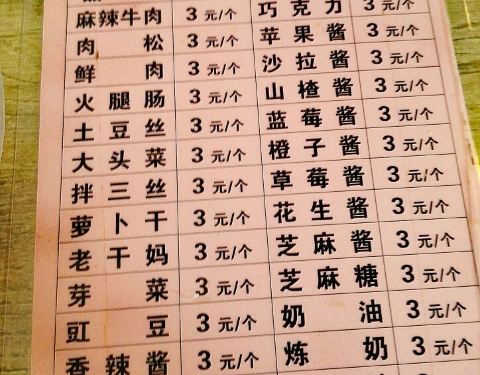 麻辣牛肉 3元/个 巧克力 3元/个
肉松 3元/个 苹果酱 3元/个
鲜肉 3元/个 沙拉酱 3元/个
火腿肠 3元/个 山楂酱 3元/个
土豆丝 3元/个 蓝莓酱 3元/个
大头菜 3元/个 橙子酱 3元/个
拌三丝 3元/个 草莓酱 3元/个
萝卜干 3元/个 花生酱 3元/个
老干妈 3元/个 芝麻酱 3元/个
芽菜 3元/个 芝麻糖 3元/个
豇豆 3元/个 奶油 3元/个
香辣酱 3元/个 炼奶 3元/个